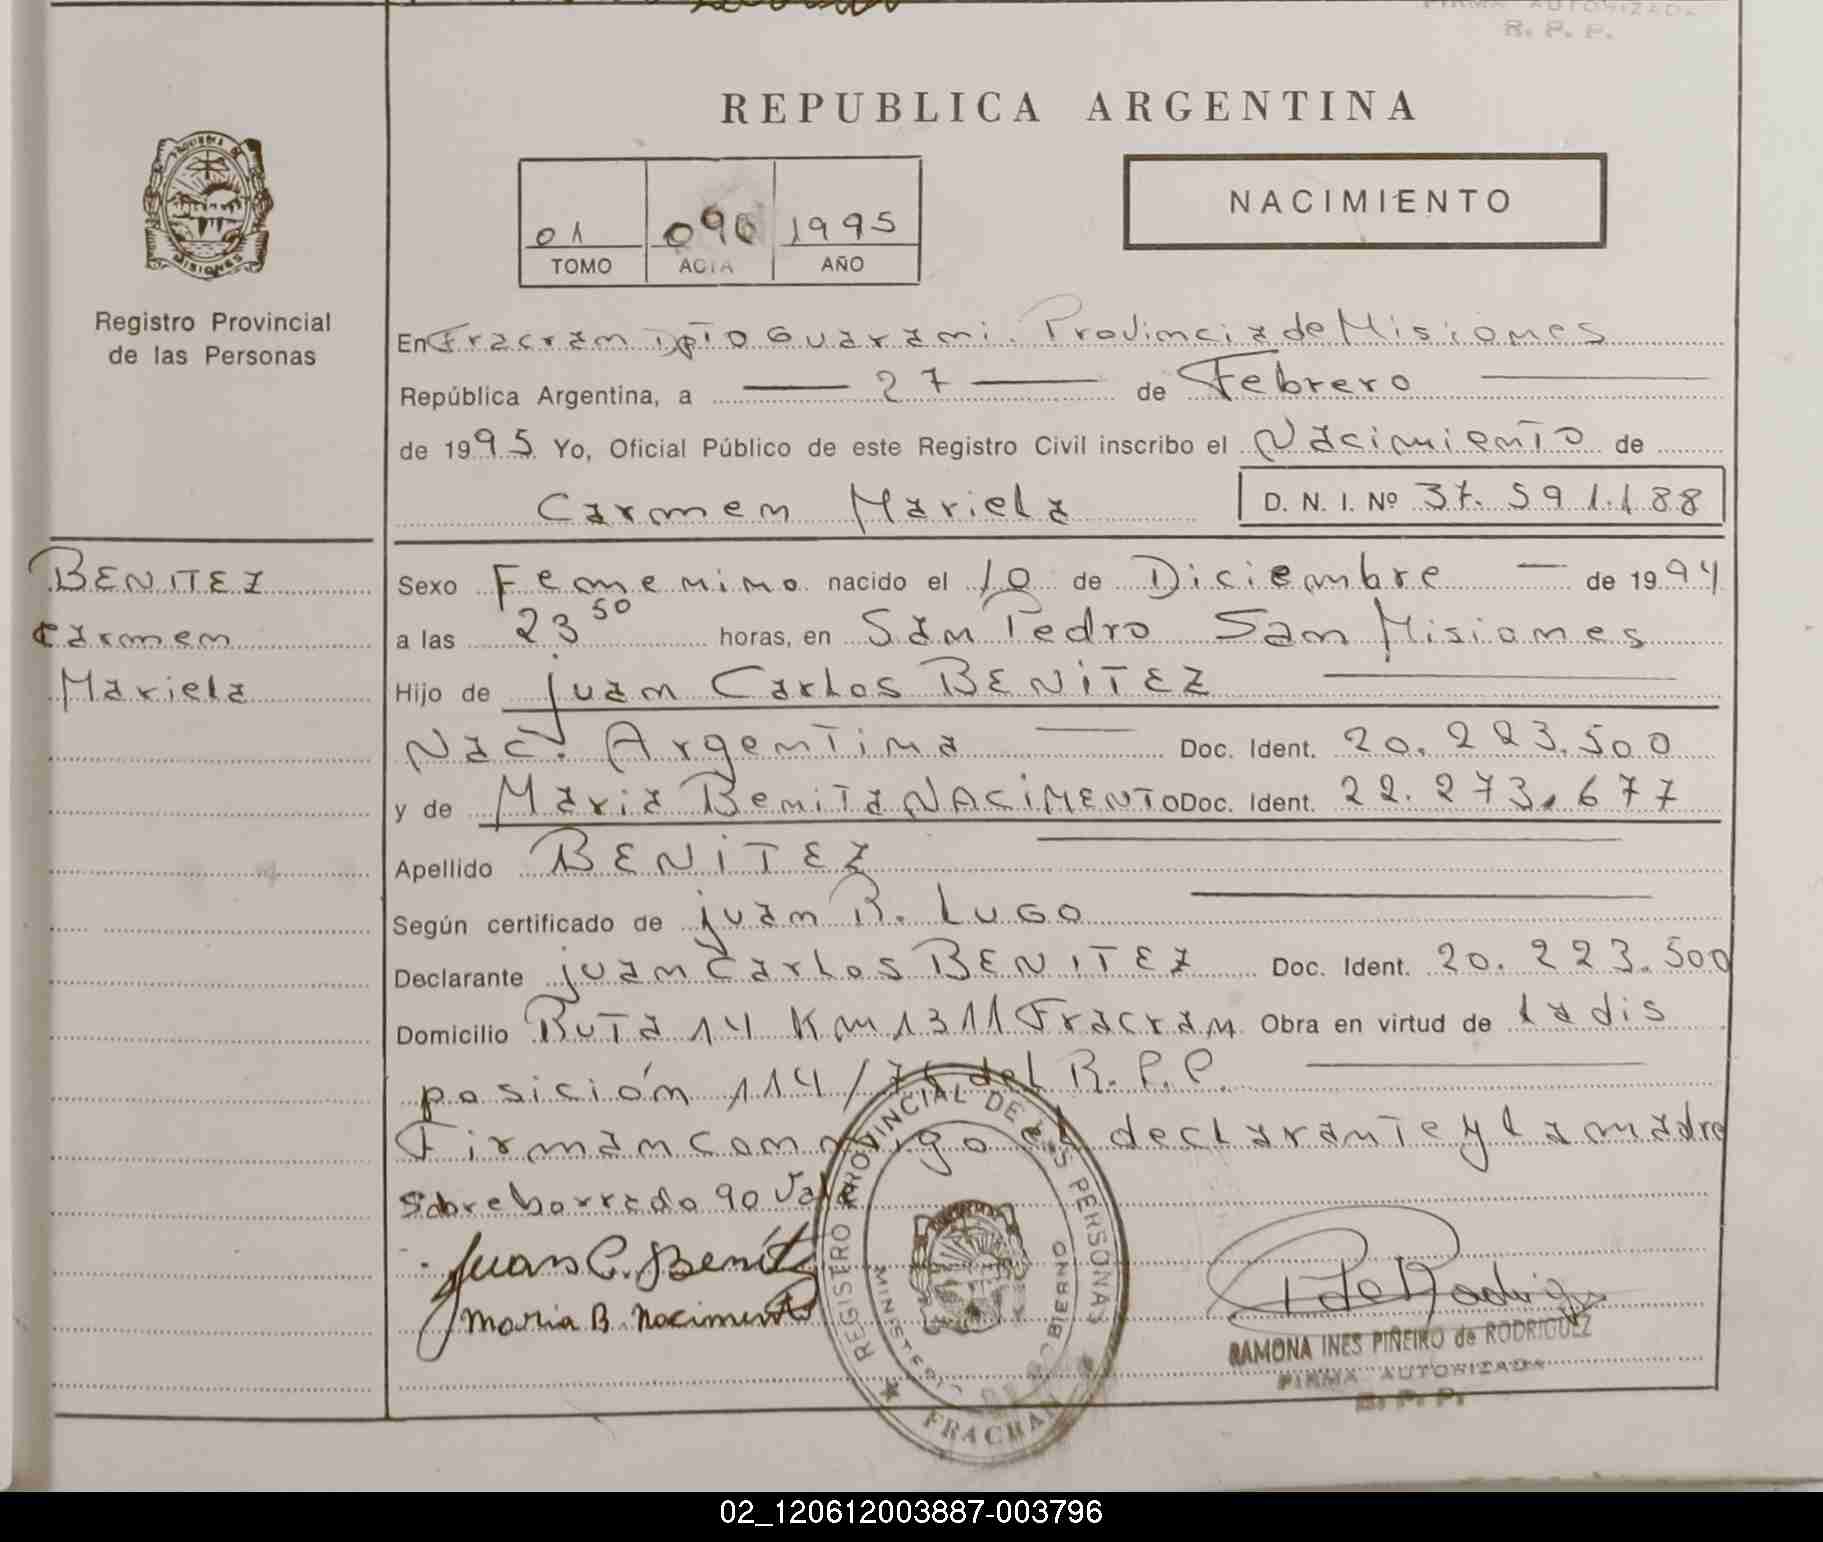 FIRMA AUTORIZADA
R. P. P.
REPUBLICA ARGENTINA
NACIMIENTO
01 090 1995
TOMO ACTA AÑO
MISIONES
Registro Provincial
de las Personas
En Fracran Dpto Guarani. Provincia de Misiones
República Argentina, a 27 de Febrero
de 1995 Yo, Oficial Público de este Registro Civil inscribo el Nacimiento de
Carmen Mariela D. N. I. Nº 37.591.188
BENITEZ
Carmen
Mariela
Sexo Femenino nacido el 10 de Diciembre de 1994
a las 23 50 horas, en San Pedro San Misiones
Hijo de Juan Carlos BENITEZ
Nac. Argentina Doc. Ident. 20.223.500
y de Maria Benita NACIMENTO Doc. Ident. 22.273.677
Apellido BENITEZ
Según certificado de Juan R. Lugo
Declarante Juan Carlos BENITEZ Doc. Ident. 20.223.500
Domicilio Ruta 14 Km 1311 Fracran Obra en virtud de la dis
posición 114/74 del R.P.P.
Firman conmigo el declarante y la madre
Sobreborrado 90 Vale
Juan C. Benit
Maria B. Nacimento
REGISTRO PROVINCIAL DE LAS PERSONAS
MINISTERIO DE GOBIERNO
FRACRAN
P de Rodrigu
RAMONA INES PIÑEIRO de RODRIGUEZ
FIRMA AUTORIZADA
R. P. P.
02_120612003887-003796